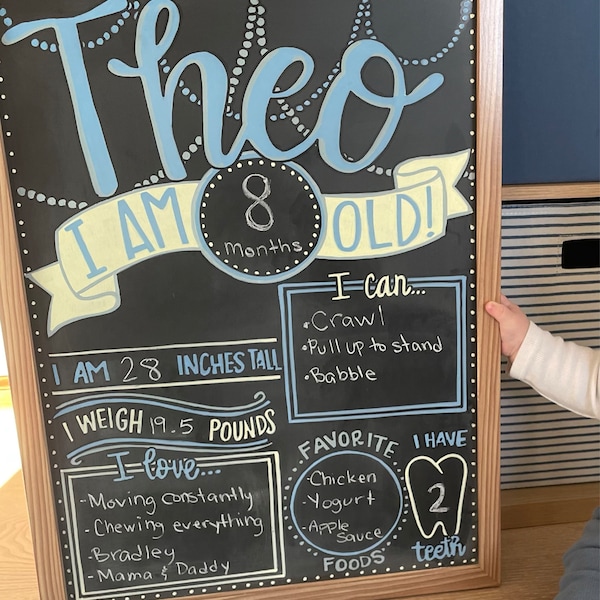 Theo
I AM 8 Months OLD!
I AM 28 INCHES TALL
I WEIGH 19.5 POUNDS
I love...
-Moving constantly
-Chewing everything
-Bradley
-Mama & Daddy
I can...
•Crawl
•Pull up to stand
•Babble
FAVORITE
-Chicken
Yogurt
-Apple
sauce
FOODS
I HAVE
2
teeth